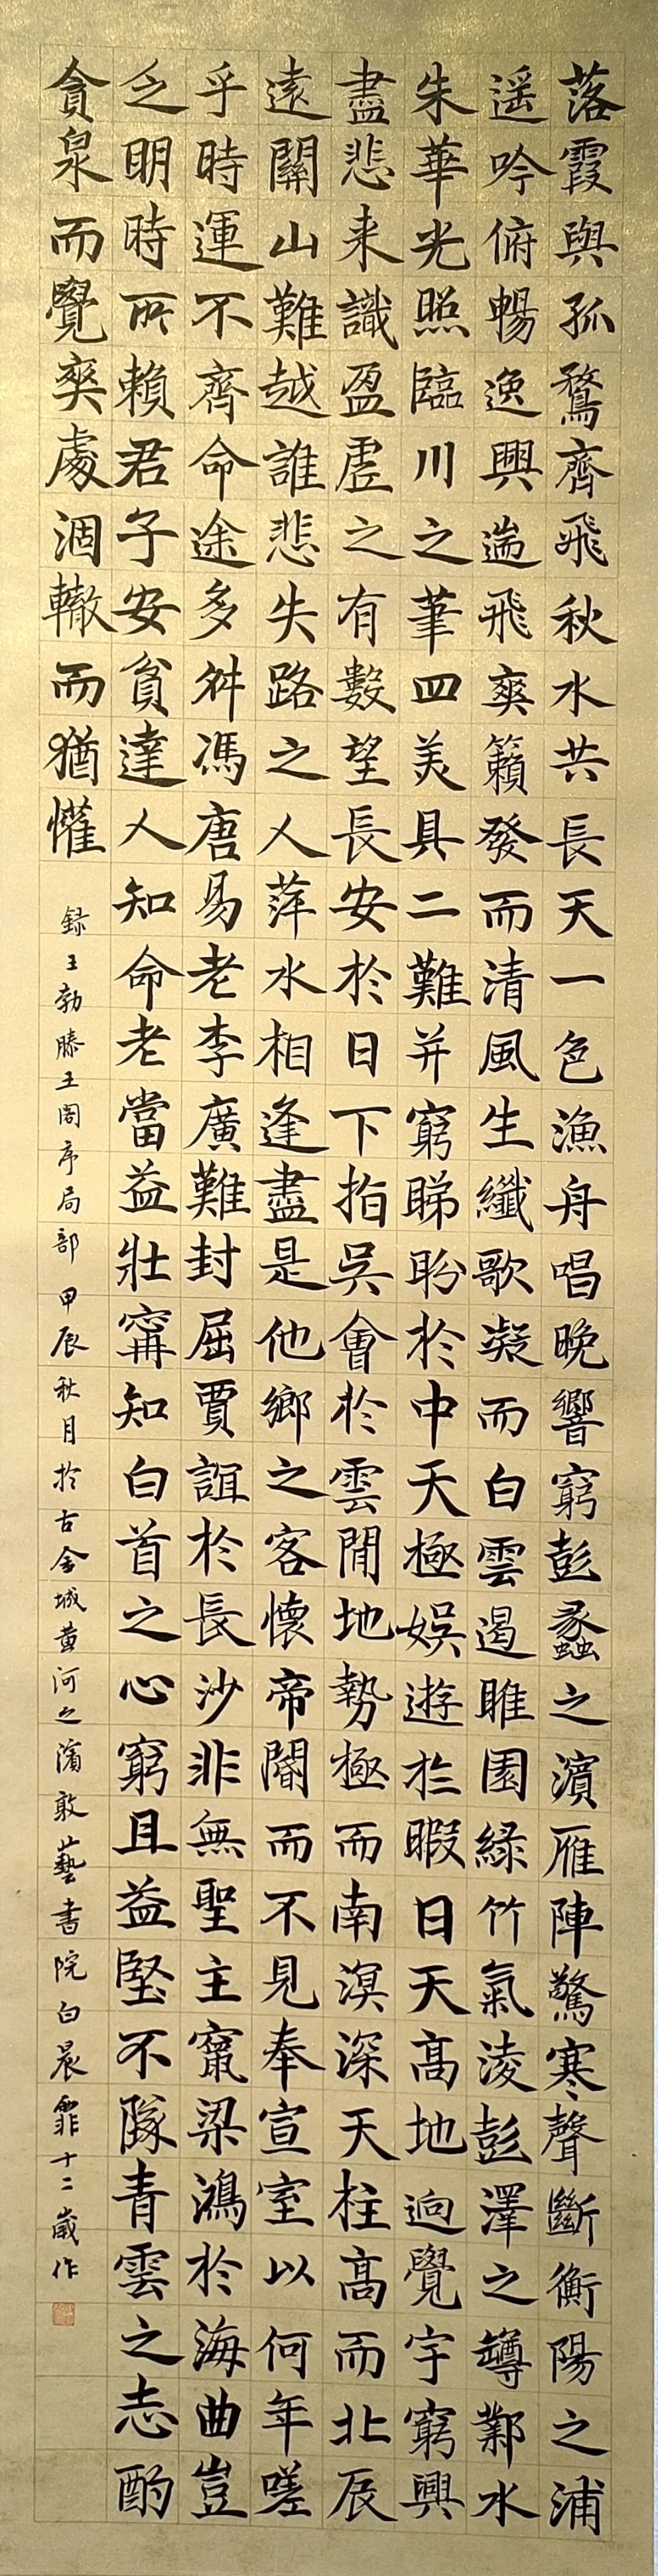 落霞與孤鶩齊飛秋水共長天一色漁舟唱晚響窮彭蠡之濱雁陣驚寒聲斷衡陽之浦
遥吟俯暢逸興遄飛爽籟發而清風生纖歌凝而白雲遏睢園綠竹氣淩彭澤之罇鄴水
朱華光照臨川之筆四美具二難并窮睇盼於中天極娛遊於暇日天高地迥覺宇窮興
盡悲来識盈虛之有數望長安於日下指吳會於雲閒地勢極而南溟深天柱高而北辰
遠關山難越誰悲失路之人萍水相逢盡是他鄉之客懷帝閽而不見奉宣室以何年嗟
乎時運不齊命途多舛馮唐易老李廣難封屈賈誼於長沙非無聖主竄梁鴻於海曲豈
乏明時所賴君子安貧達人知命老當益壯寗知白首之心窮且益堅不隊青雲之志酌
貪泉而覺爽處涸轍而猶懽
録王勃滕王閣序局部 甲辰秋月於古金城黄河之濱敢藝書院白晨霏十二歲作